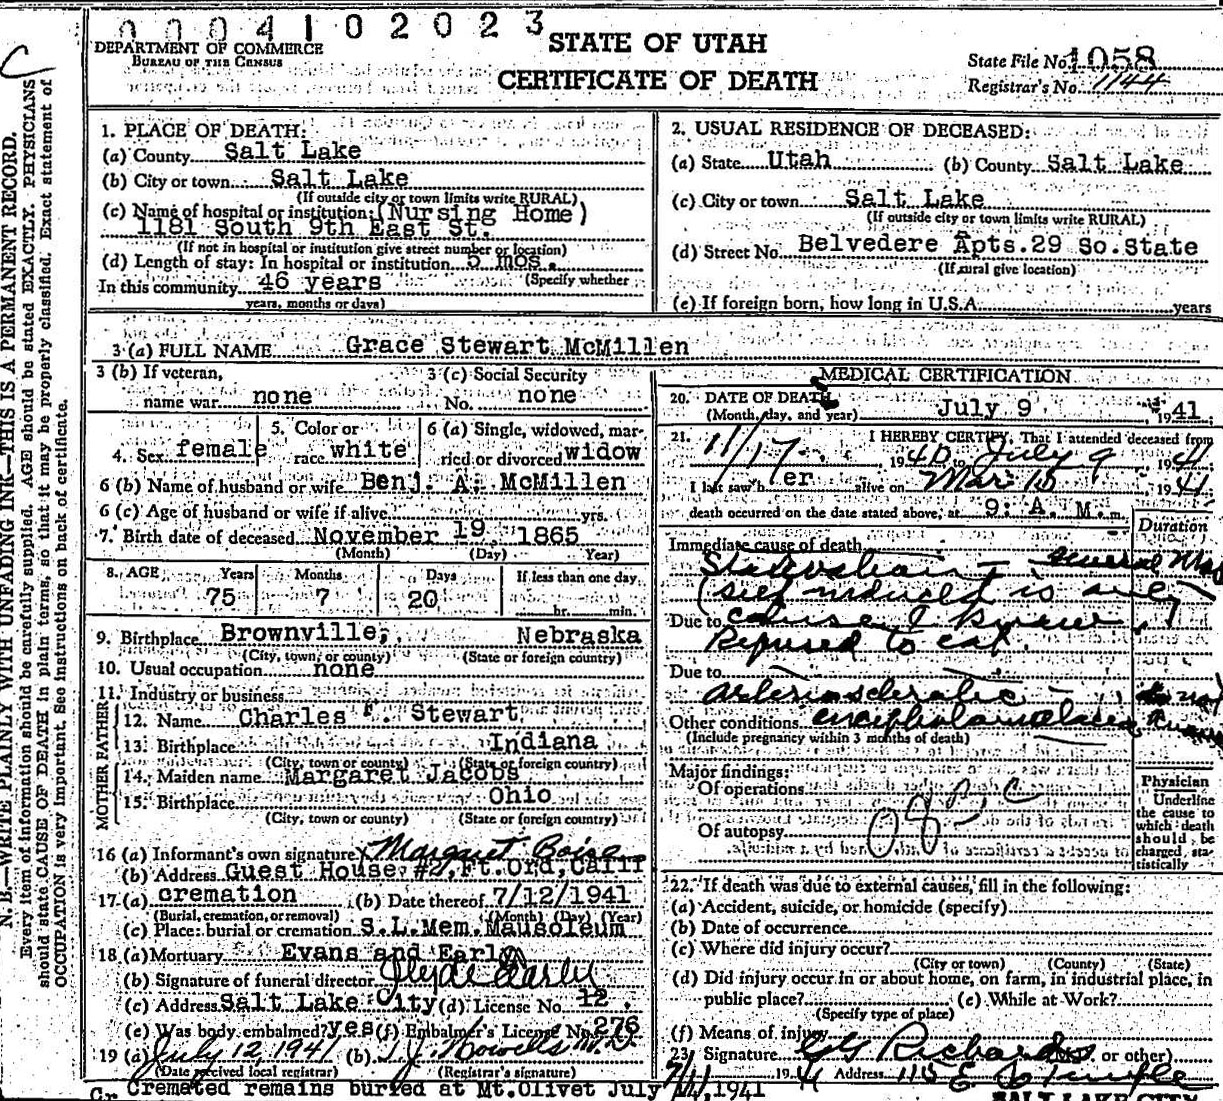 0004102023
DEPARTMENT OF COMMERCE
BUREAU OF THE CENSUS
STATE OF UTAH
CERTIFICATE OF DEATH
State File No. 1058
Registrar's No. 1144
C
N. B.—WRITE PLAINLY WITH UNFADING INK—THIS IS A PERMANENT RECORD.
Every item of information should be carefully supplied. AGE should be stated EXACTLY. PHYSICIANS
should state CAUSE OF DEATH in plain terms, so that it may be properly classified. Exact statement of
OCCUPATION is very important. See instructions on back of certificate.
1. PLACE OF DEATH:
(a) County Salt Lake
(b) City or town Salt Lake
(If outside city or town limits write RURAL)
(c) Name of hospital or institution: (Nursing Home)
1181 South 9th East St.
(If not in hospital or institution give street number or location)
(d) Length of stay: In hospital or institution 5 mos.
In this community 46 years (Specify whether
years, months or days)
2. USUAL RESIDENCE OF DECEASED:
(a) State Utah (b) County Salt Lake
(c) City or town Salt Lake
(If outside city or town limits write RURAL)
(d) Street No. Belvedere Apts. 29 So. State
(If rural give location)
(e) If foreign born, how long in U.S.A. years
3 (a) FULL NAME Grace Stewart McMillen
3 (b) If veteran,
name war none
3 (c) Social Security
No. none
4. Sex female
5. Color or
race white
6 (a) Single, widowed, mar-
ried or divorced widow
6 (b) Name of husband or wife Benj. A. McMillen
6 (c) Age of husband or wife if alive yrs.
7. Birth date of deceased November 19, 1865
(Month) (Day) Year)
8. AGE Years Months Days If less than one day
75 7 20 hr. min.
9. Birthplace Brownville, Nebraska
(City, town, or county) (State or foreign country)
10. Usual occupation none
11. Industry or business
FATHER
12. Name Charles F. Stewart
13. Birthplace Indiana
(City, town or county) (State or foreign country)
MOTHER
14. Maiden name Margaret Jacobs
15. Birthplace Ohio
(City, town or county) (State or foreign country)
16 (a) Informant's own signature Margaret Boise
(b) Address Guest House #2, Ft. Ord, Calif
17. (a) cremation (b) Date thereof 7/12/1941
(Burial, cremation, or removal) (Month) (Day) (Year)
(c) Place: burial or cremation S.L. Mem. Mausoleum
18 (a) Mortuary Evans and Early
(b) Signature of funeral director Clyde Early
(c) Address Salt Lake City (d) License No. 12
(e) Was body embalmed? yes (f) Embalmer's License No. 276
19 (a) July 12, 1941 (b) T. J. Howells M.D.
(Date received local registrar) (Registrar's signature)
Cr Cremated remains buried at Mt. Olivet July 14, 1941
MEDICAL CERTIFICATION
20. DATE OF DEATH
(Month, day, and year) July 9 1941
21. I HEREBY CERTIFY, That I attended deceased from
11/17, 1940 to July 9 1941
I last saw her alive on Mar 10 1941
death occurred on the date stated above, at 9: A. M. m.
Duration
Immediate cause of death
Starvation — several mos
(self induced is only
Due to cause I know.
Refused to eat.
Due to
arteriosclerotic —
Other conditions encephalomalacia
(Include pregnancy within 3 months of death)
Major findings:
Of operations
Of autopsy
Physician
Underline
the cause to
which death
should be
charged sta-
tistically
22. If death was due to external causes, fill in the following:
(a) Accident, suicide, or homicide (specify)
(b) Date of occurrence
(c) Where did injury occur?
(City or town) (County) (State)
(d) Did injury occur in or about home, on farm, in industrial place, in
public place? (e) While at Work?
(Specify type of place)
(f) Means of injury
23. Signature G G Richards or other)
7/11 1941 Address 115 E So Temple
SALT LAKE CITY